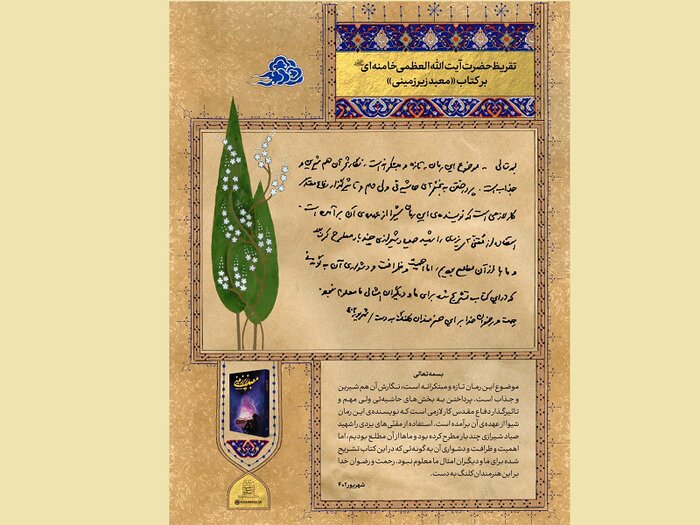 تقریظ حضرت آیت الله العظمی خامنه‌ای
بر کتاب «معبد زیرزمینی»
بسمه‌تعالی - موضوع این رمان، تازه و مبتکرانه است، نگارش آن هم شیرین و
جذاب است. پرداختن به بخشهای حاشیه‌ئی ولی مهم و تأثیرگذار دفاع مقدس
کار لازمی است که نویسنده‌ی این رمان شیوا از عهده‌ی آن برآمده است.
استفاده از مقنّی‌های یزدی را شهید صیاد شیرازی چند بار مطرح کرده بود
و ماها از آن مطلع بودیم، اما اهمیت و ظرافت و دشواری آن به گونه‌ئی
که در این کتاب تشریح شده برای ما و دیگران امثال ما معلوم نبود.
رحمت و رضوان خدا بر این هنرمندان کلنگ به دست / شهریور ۴۰۲
معبد زیرزمینی
بسمه تعالی
موضوع این رمان تازه و مبتکرانه است، نگارش آن هم شیرین
و جذاب است. پرداختن به بخش‌های حاشیه‌ئی ولی مهم و
تاثیرگذار دفاع مقدس کار لازمی است که نویسنده‌ی این رمان
شیوا از عهده‌ی آن برآمده است. استفاده از مقنی‌های یزدی را شهید
صیاد شیرازی چند بار مطرح کرده بود و ماها از آن مطلع بودیم، اما
اهمیت و ظرافت و دشواری آن به گونه‌ئی که در این کتاب تشریح
شده برای ما و دیگران امثال ما معلوم نبود. رحمت و رضوان خدا
بر این هنرمندان کلنگ به دست.
شهریور ۴۰۲